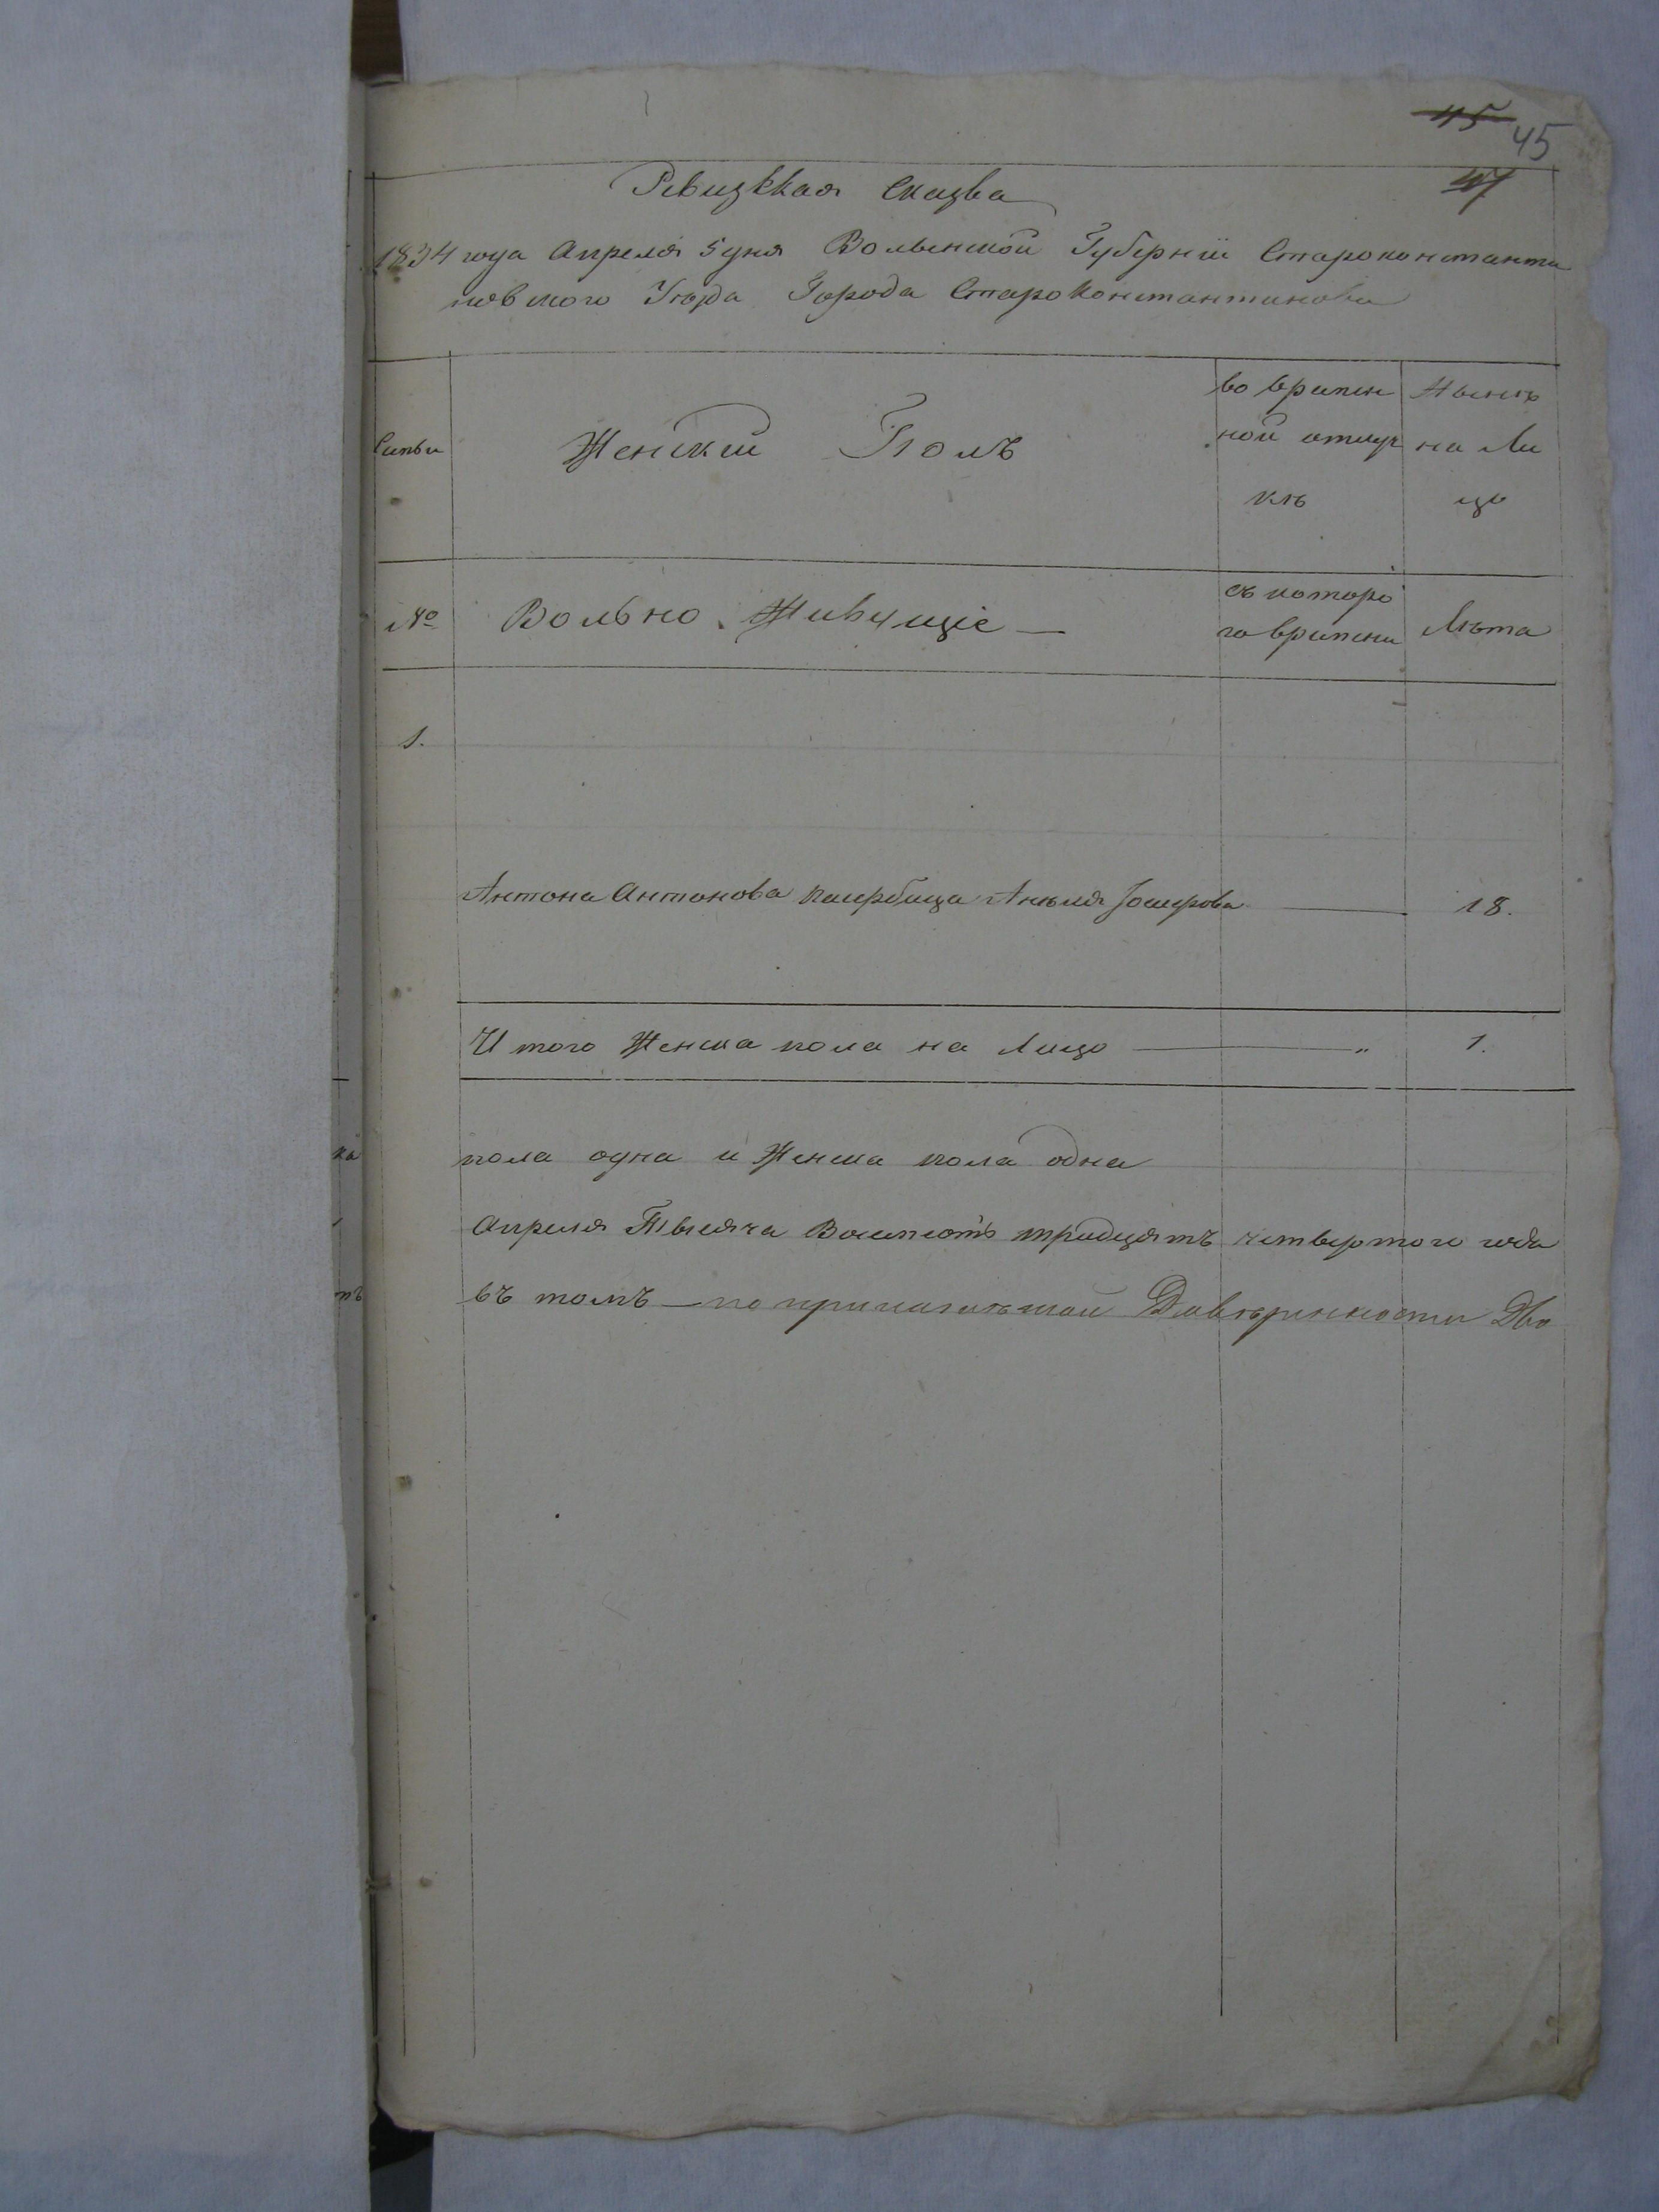 45
45
Ревизккая Сказка
1834 года Апреля 5 дня Волынской Губерніи Староконстанти
новского Уѣзда Города СтароКонстантинова
Семьи
Женскій Полъ
во времен
ной отлуч
кѣ
Нынѣ
на Ли
цо
№
Вольно Живущіе —
съ которо
го времени
Лѣта
1.
Антона Антонова Анеля Іосифова — 18.
И того Женска пола на Лицо — „ 1.
пола одна и Женска пола одна
Апреля Тысяча Восемьсотъ тридцятъ четвертого года
въ томъ — по Довѣренности Дво
ка
тъ